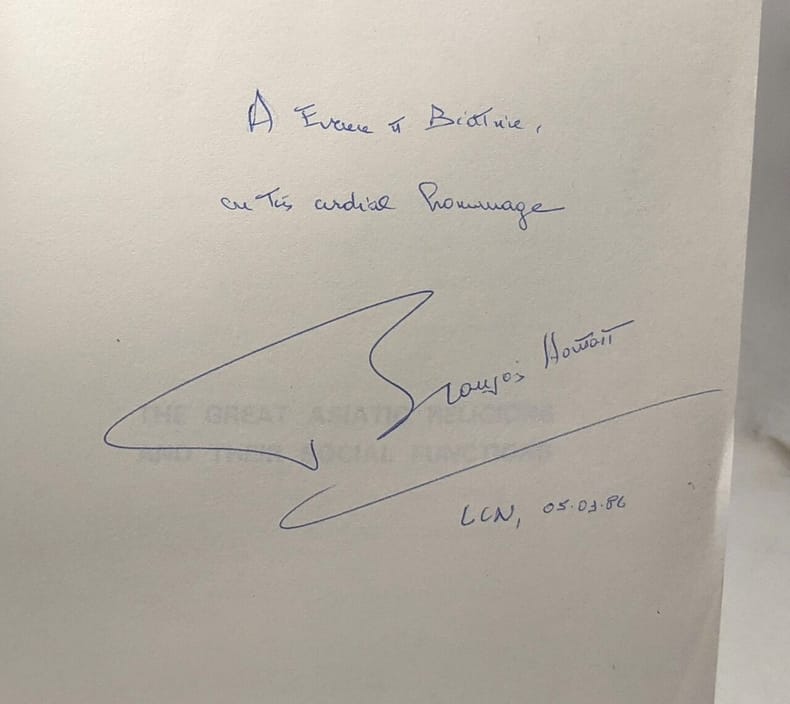 A et Béatrice,
en très cordial hommage
François Houtart
THE GREAT ASIATIC RELIGIONS
AND THEIR SOCIAL FUNCTIONS
LLN, 86